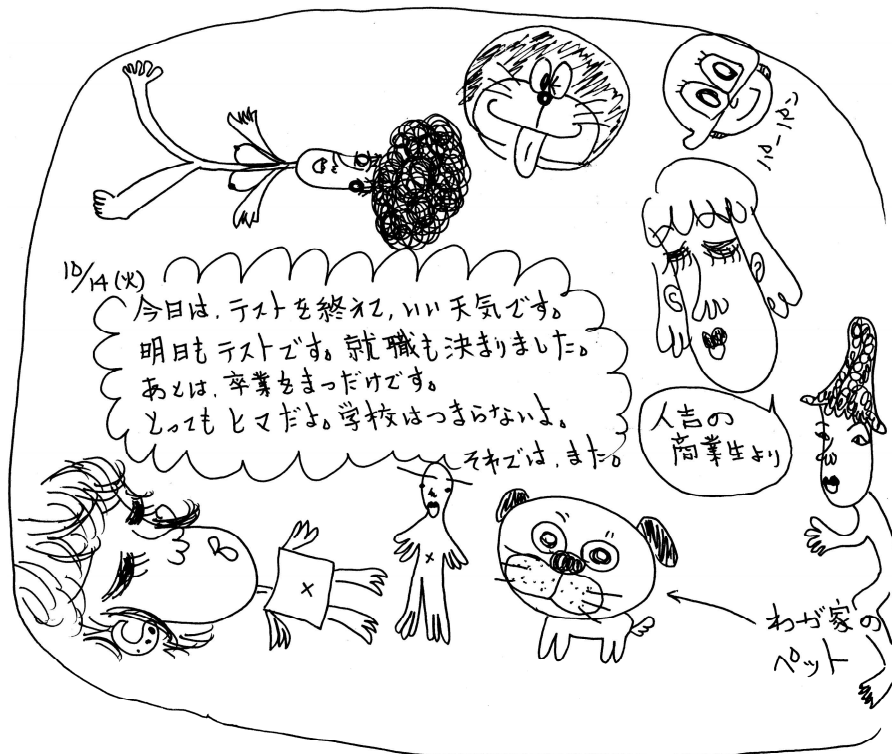 パーパン
10/14(火)
今日は、テストを終えて、いい天気です。
明日もテストです。就職も決まりました。
あとは、卒業をまつだけです。
とってもヒマだよ。学校はつまらないよ。
それでは、また。
人吉の
商業生より
わが家の
ペット